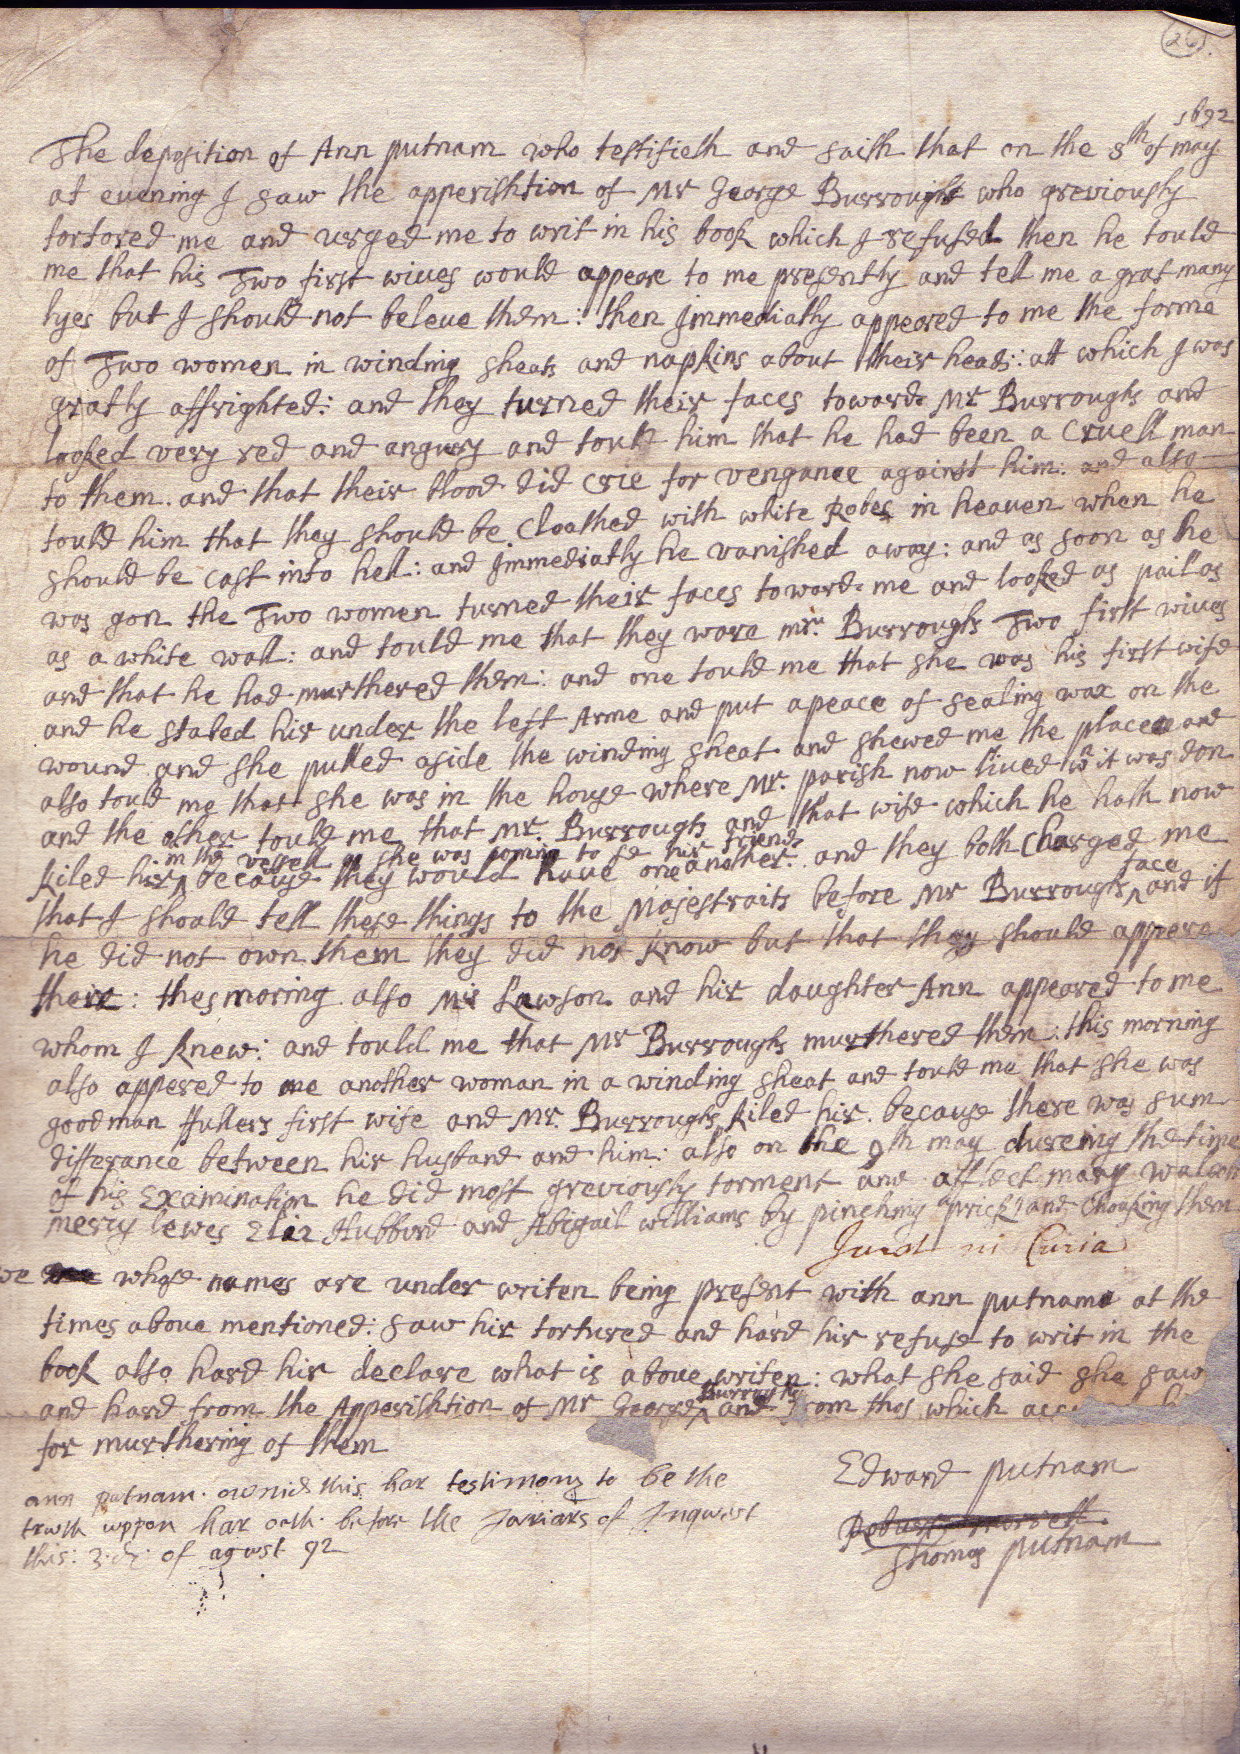 (26).
1692
The deposition of Ann putnam who testifieth and saith that on the 8th of may
at evening I saw the apperishtion of Mr George Burroughs who greviously
tortored me and urged me to writ in his book which I refused then he tould
me that his Two first wives would appeare to me presently and tell me a grat many
lyes but I should not beleve them: then Immediatly appeared to me the forme
of Two women in winding sheats and napkins about their heads: att which I was
gratly affrighted: and they turned their faces towards Mr Burroughs and
looked very red and angury and tould him that he had been a cruell man
to them. and that their blood did crie for vengance against him: and also
tould him that they should be cloathed with white Robes in heaven when he
should be cast into hell: and Immediatly he vanished away: and as soon as he
was gon the Two women turned their faces towards me and looked as pail as
as a white wall: and tould me that they ware mr: Burroughs Two first wives
and that he had murthered them: and one tould me that she was his first wife
and he stabed hir under the left Arme and put a peace of sealing wax on the
wound and she pulled aside the winding sheat and shewed me the place and
also tould me that she was in the house where Mr. parish now lived wn it was don
and the other tould me that Mr. Burroughs and that wife which he hath now
in the vessell as she was coming to se hir friends
kiled hir ^ because they would have one another. and they both charged me
that I should tell these things to the Majestraits before Mr Burroughs ^ face and if
he did not own them they did not know but that they should appere
their: thes moring also Mis Lawson and hir daughter Ann appeared to me
whom I knew: and tould me that Mr Burroughs murthered them: this morning
also appered to me another woman in a winding sheat and tould me that she was
goodman ffullers first wife and Mr. Burroughs kiled hir. because there was sum
differance between hir husband and him: also on the 9th may dureing the time
of his Examination he did most greviously torment and afflect mary walcott
mercy lewes Eliz Hubburd and Abigail williams by pinching pricking and choaking them
Jurat in Curia
we whose names are under writen being present with ann putnam at the
times above mentioned: saw hir tortured and hard hir refuse to writ in the
book also hard hir declare what is above writen: what she said she saw
and hard from the Apperishtion of Mr George ^ Burroughs and from thos which acc
for murthering of them
ann putnam owned this har testimony to be the
truth uppon har oath before the Juriars of Inquest
this: 3: dy: of agust 92
Edward putnam
Robert Morrell
Thomas putnam